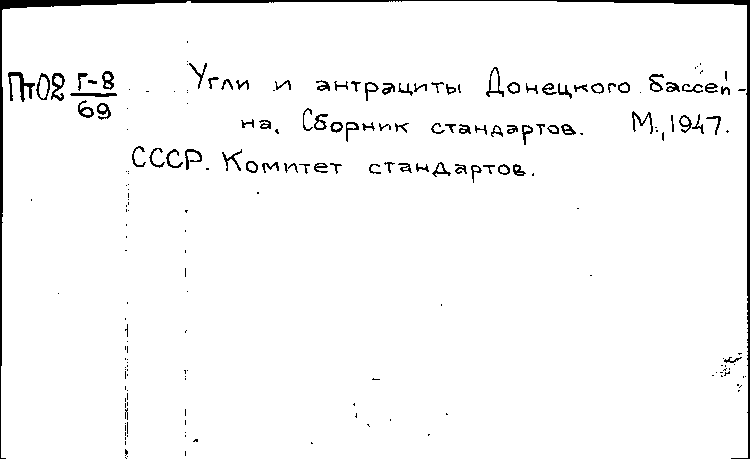 Пт02 Г-8/69 Угли и антрациты Донецкого бассей-
на. Сборник стандартов. М., 1947.
СССР. Комитет стандартов.